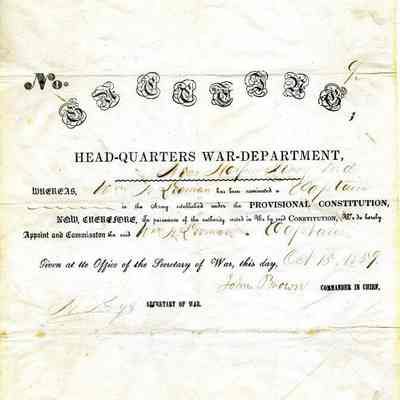 No.
9
GREETING
HEAD-QUARTERS WAR-DEPARTMENT,
Near Md
WHEREAS, Wm H Leeman has been nominated a Captain
in the Army established under the PROVISIONAL CONSTITUTION,
NOW, THEREFORE, In pursuance of the authority vested in We by said CONSTITUTION, We do hereby
Appoint and Commission the said Wm H Leeman a Captain
Given at the Office of the Secretary of War, this day, Oct 15, 1859
John Brown COMMANDER IN CHIEF,
SECRETARY OF WAR.